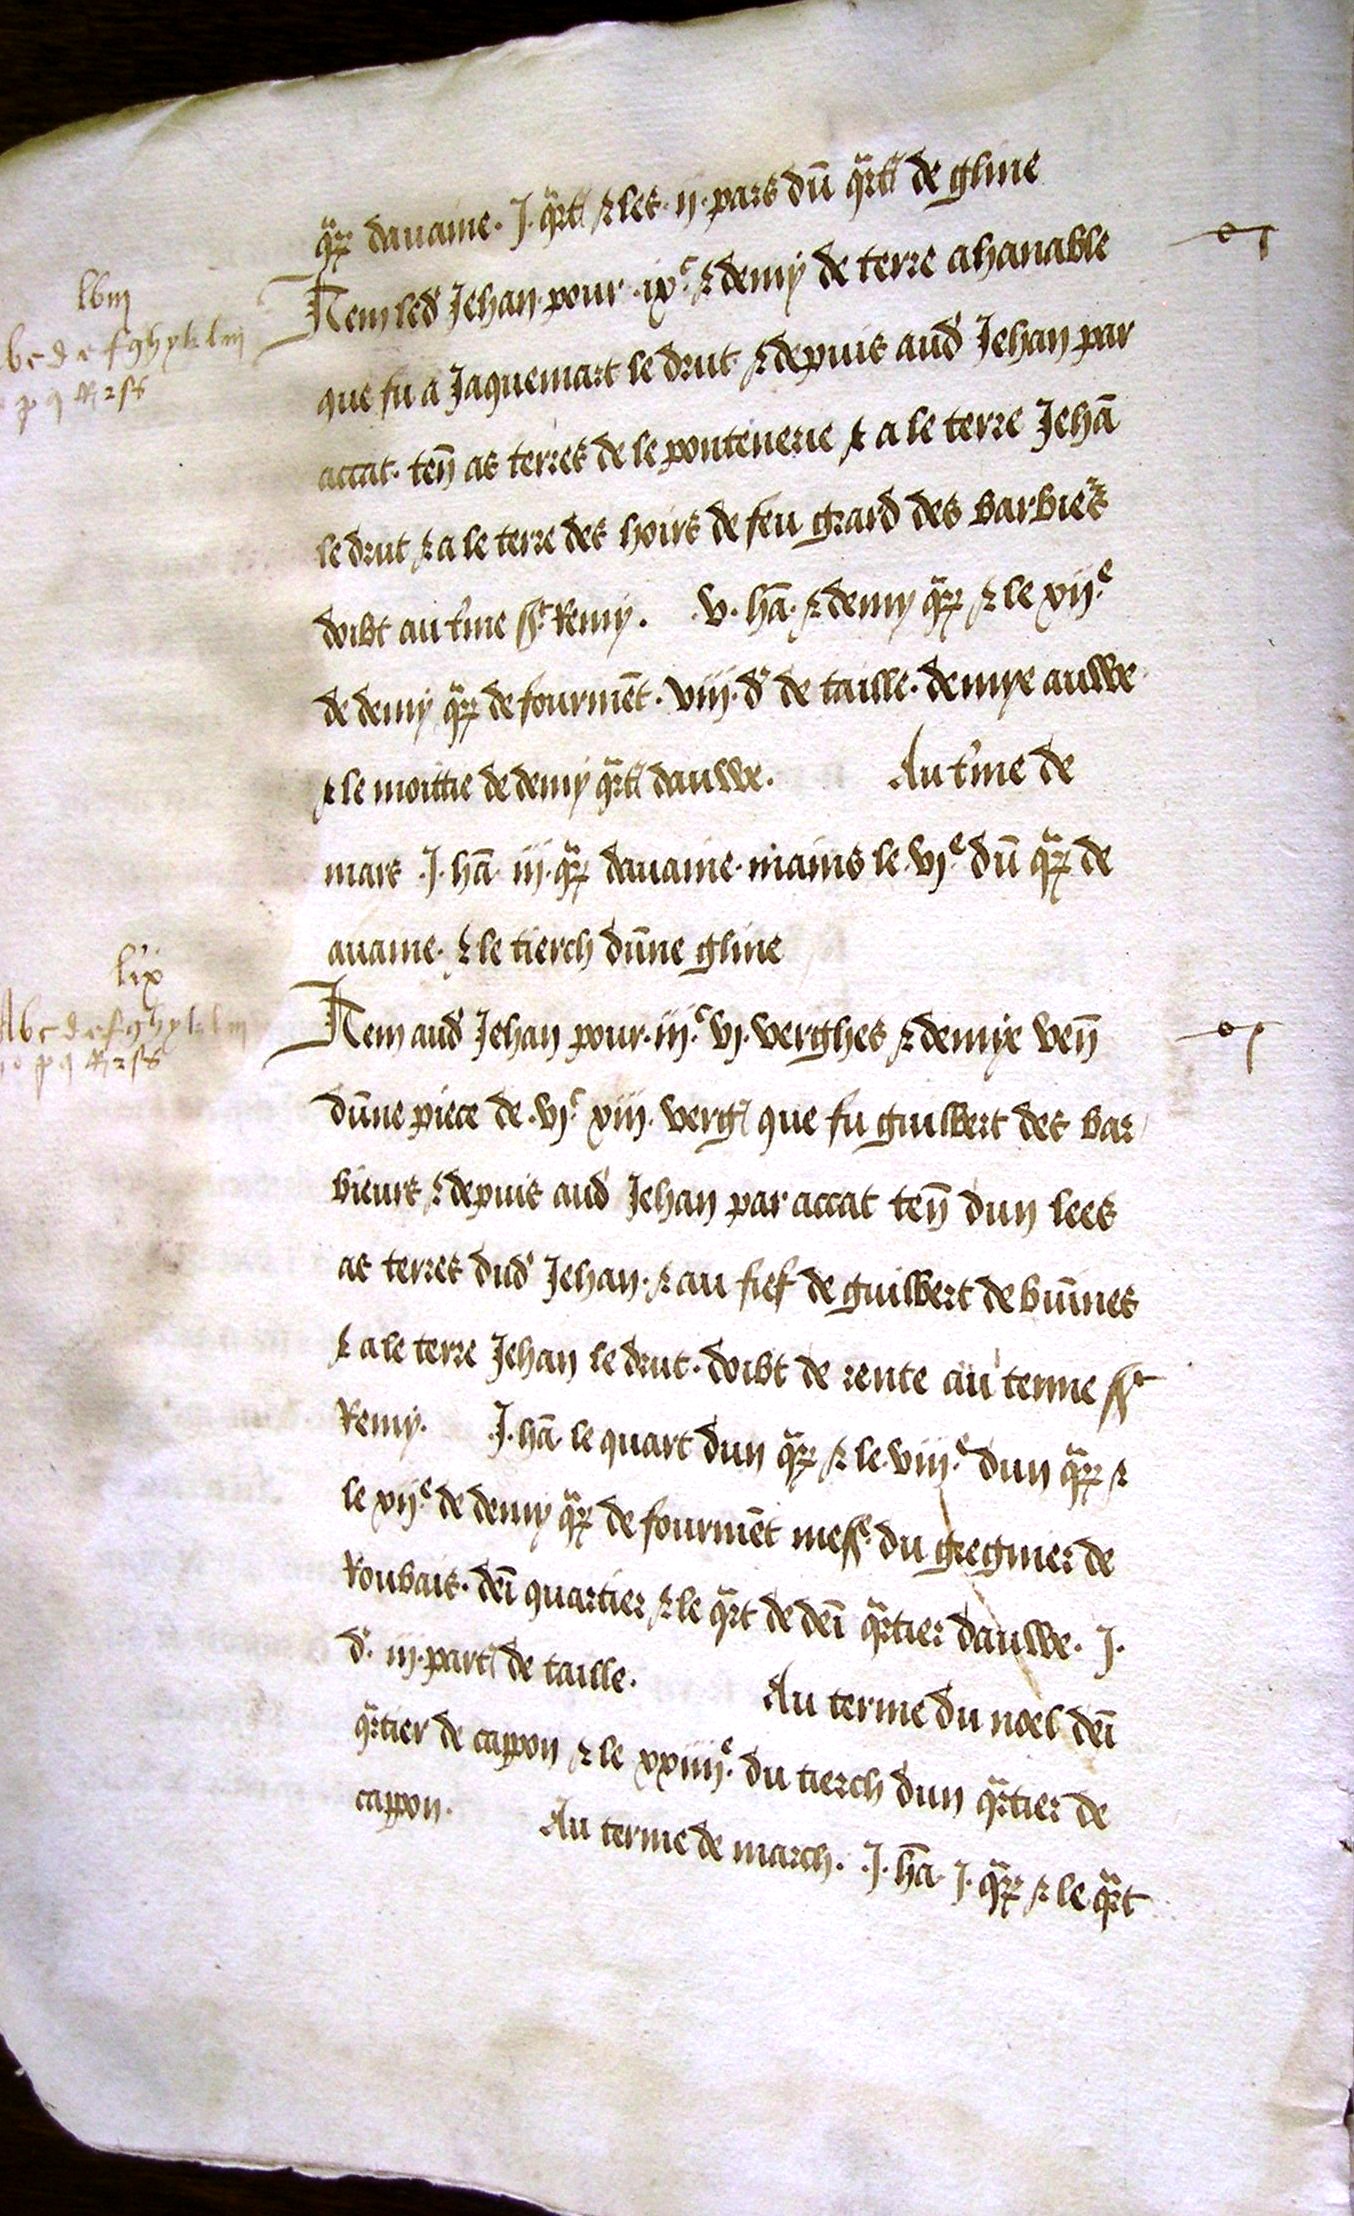 q̄rꝫ davaine. J. q̄rtꝭ ⁊ les .ij. pars dū q̄rtꝭ de gline
Jtem led' Jehan pour .ixᶜ. ⁊ demy de terre ahanable
que fu a Jaquemart le drut ⁊ depuis aud' Jehan par
accat. ten̄ as terres de le pontenerie ⁊ a le terre Jehā
le drut ⁊ a le terre des hoirs de feu grard des barbie's
doibt au t'me sᵗ Remy. .v. hā. ⁊ demy q̄rꝫ ⁊ le xijᵉ.
de demy q̄rꝫ de fourmēt. viij. d' de taille. demye auwe
⁊ le moittie de demy q̄rtꝭ dauwe. Au t'me de
mars .J. hā. iij. q̄rꝫ davaine. mains le .vjᵉ. dū q̄rꝫ de
avaine. ⁊ le tierch dūne gline
lviij
bcdefghyklm
p q R2 ss
Jtem aud' Jehan pour .iijᶜ. vj. verghes ⁊ demye ven̄
dūne piece de .vjᶜ. xiij. vergꝭ que fu guilbert des bar
bieurs ⁊ depuis aud' Jehan par accat ten̄ dun lees
as terres dud' Jehan. ⁊ au fief de guilbert de buīnes
⁊ a le terre Jehan le drut. doibt de rente au terme sᵗ
Remy. .J. hā. le quart dun q̄rꝫ ⁊ le .viijᵉ. dun q̄rꝫ ⁊
le xijᵉ. de demy q̄rꝫ de fourmēt mess. du gregnier de
Roubais. demī quartier ⁊ le q̄rt de demī q̄rtier dauwe. J.
d'. iij. partꝭ de taille. Au terme du noel demī
q̄rtier de cappon ⁊ le xxiiijᵉ. du tierch dun q̄rtier de
cappon. Au terme de march. .J. hā. J. q̄rꝫ ⁊ le q̄rt
lix
Abcdefghyklm
o p q R2 ss